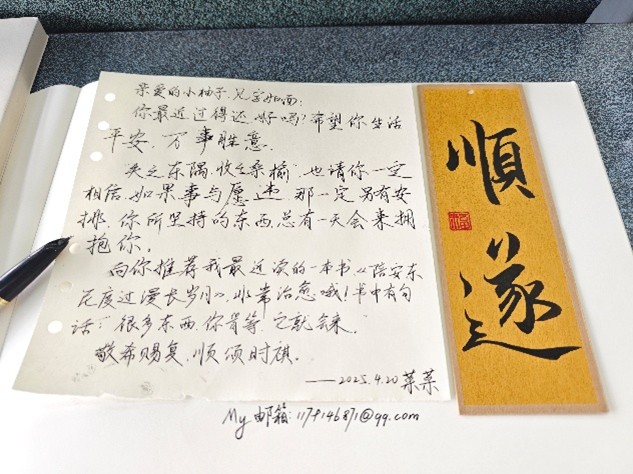 亲爱的小柚子,见字如面:
你最近过得还好吗?希望你生活
平安,万事胜意。
失之东隅,收之桑榆,也请你一定
相信,如果事与愿违,那一定另有安
排,你所坚持的东西,总有一天会来拥
抱你。
向你推荐我最近读的一本书《陪安东
尼度过漫长岁月》,非常治愈哦!书中有句
话:很多东西,你肯等,它就会来。
敬希赐复,顺颂时祺。
——2025.4.20 菜菜
My 邮箱:
@qq.com
順
遂